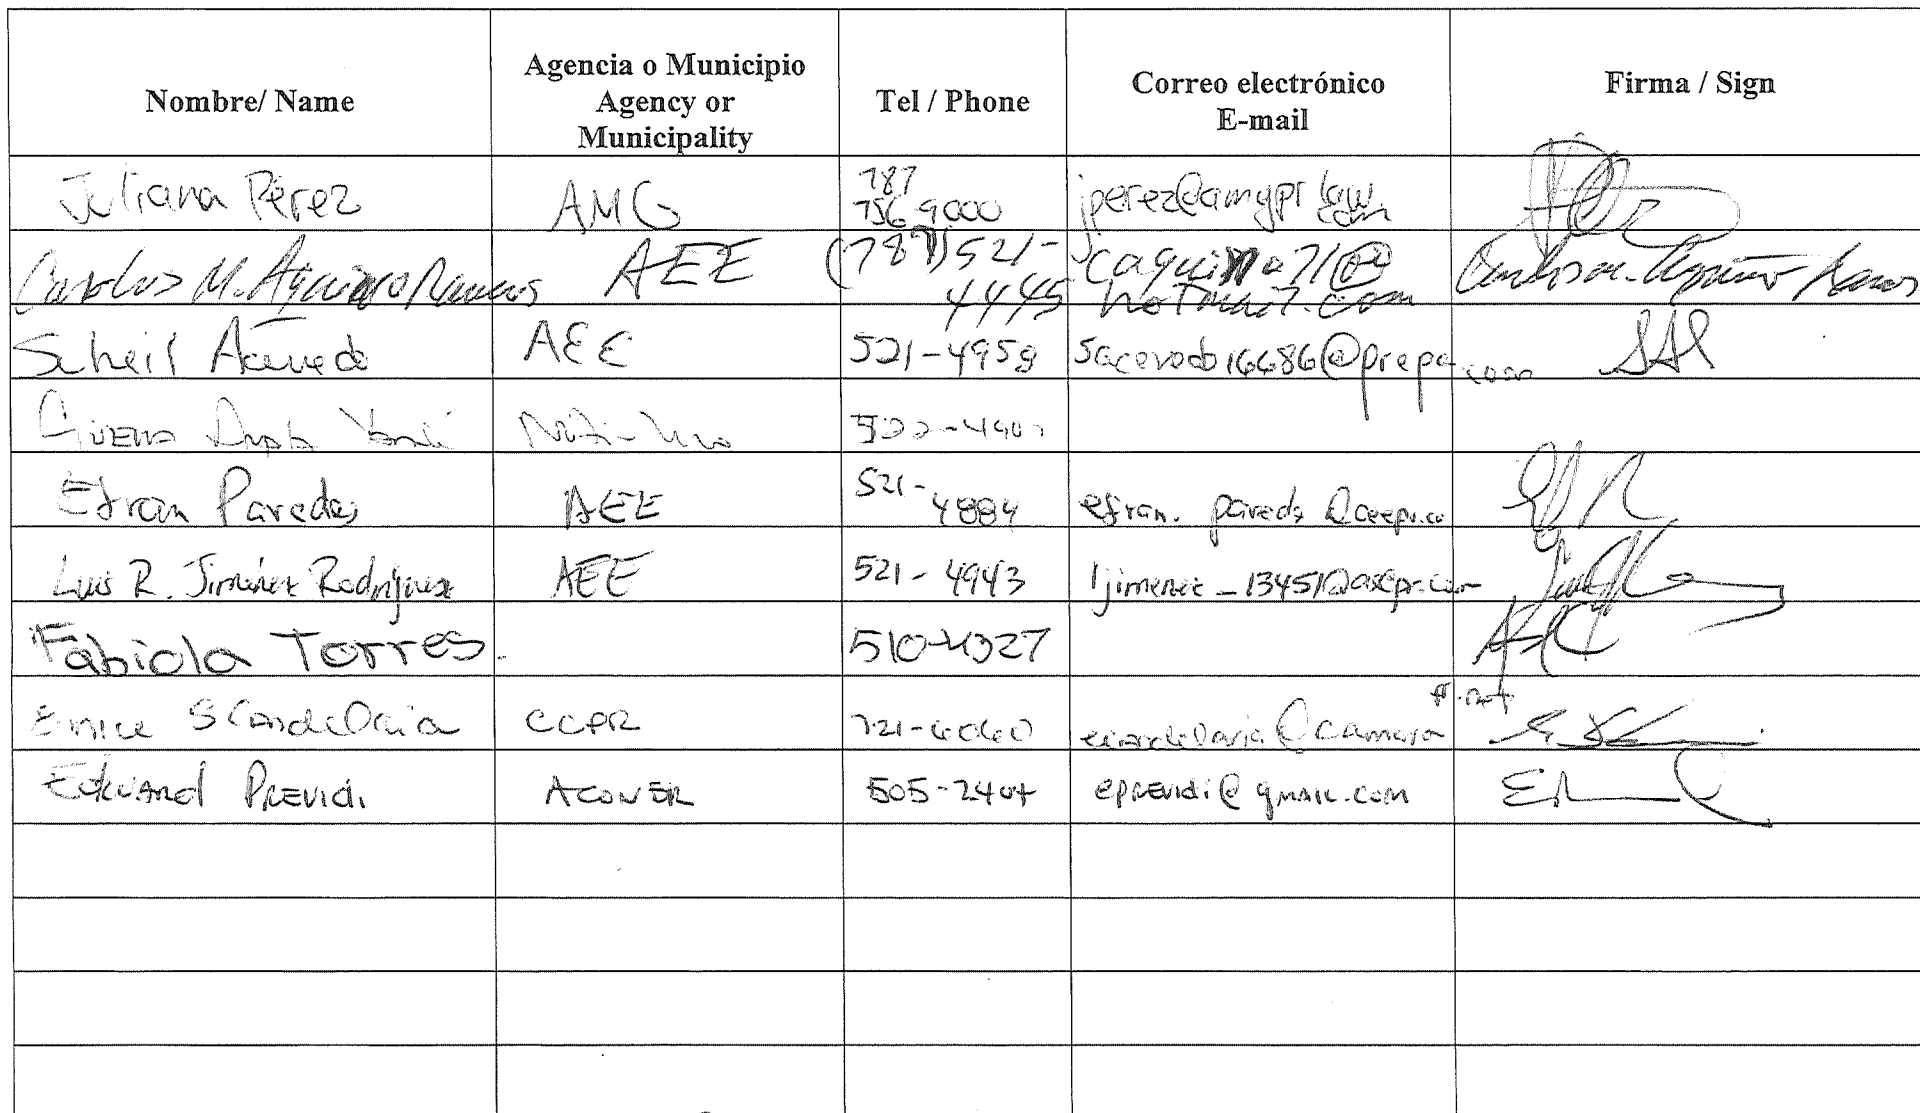 Nombre/ Name
Agencia o Municipio
Agency or
Municipality
Tel / Phone
Correo electrónico
E-mail
Firma / Sign
Juliana Pérez
AMG
787
756 9000
jperez@amgprlaw
com
Carlos M. Aquino Ramos
AEE
(787) 521-
4445
caquino71@
hotmail.com
Carlos M. Aquino Ramos
Scheil Acevedo
AEE
521-4958
sacevedo16686@prepa.com
Efran Paredes
AEE
521-
4884
efran.
Luis R. Jiménez Rodríguez
AEE
521-4943
ljimenez_13451@aeepr.com
Fabiola Torres.
510-4327
CCPR
721-6060
.net
ecandelaria@camara
Edward Previdi
ACONER
eprevidi@gmail.com